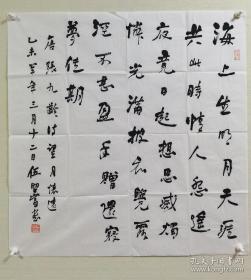 海上生明月天涯
共此時情人怨遙
夜竟夕起相思滅燭
憐光滿披衣覺露
滋不堪盈手贈還寢
夢佳期
唐張九齡詩望月懷遠
乙未羊年三月十二日伍